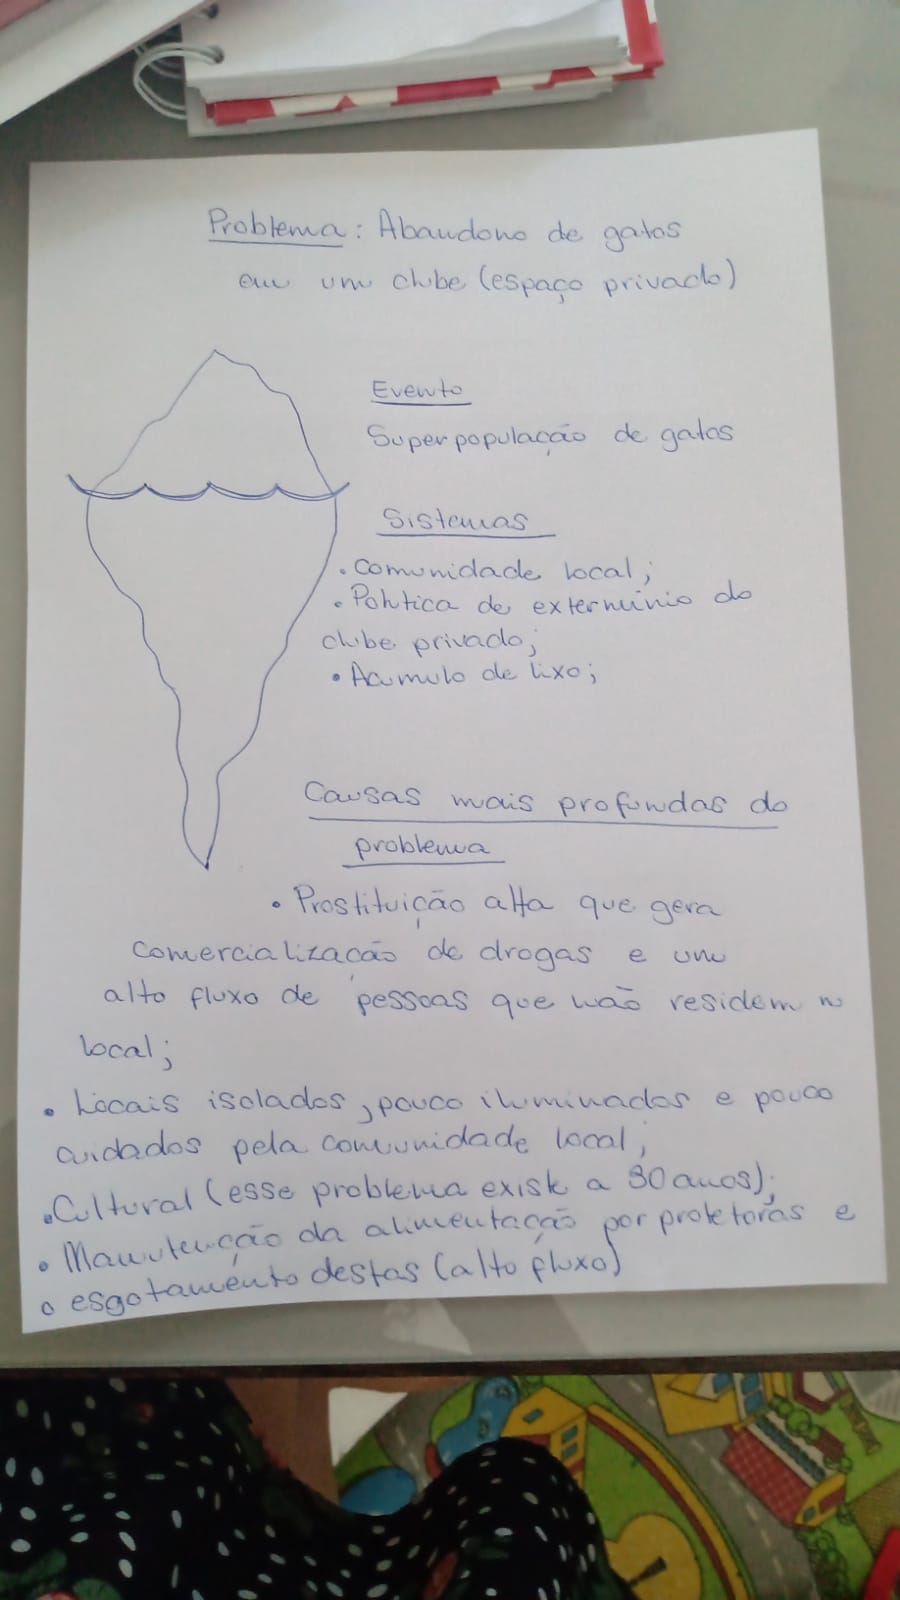 Problema: Abandono de gatos
em um clube (espaço privado)
Evento
Superpopulação de gatos
Sistemas
• Comunidade local;
• Política de extermínio do
clube privado;
• Acumulo de lixo;
Causas mais profundas do
problema
• Prostituição alta que gera
comercialização de drogas e um
alto fluxo de pessoas que não residem no
local;
• Locais isolados, pouco iluminados e pouco
cuidados pela comunidade local;
• Cultural (esse problema existe a 30 anos);
• Manutenção da alimentação por protetoras e
o esgotamento destas (alto fluxo)